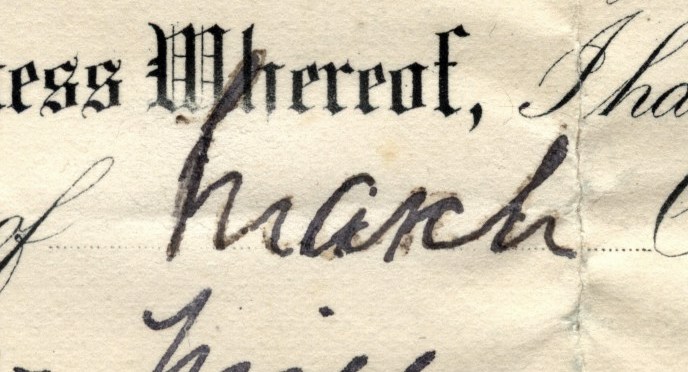 ess Whereof, I ha
of March